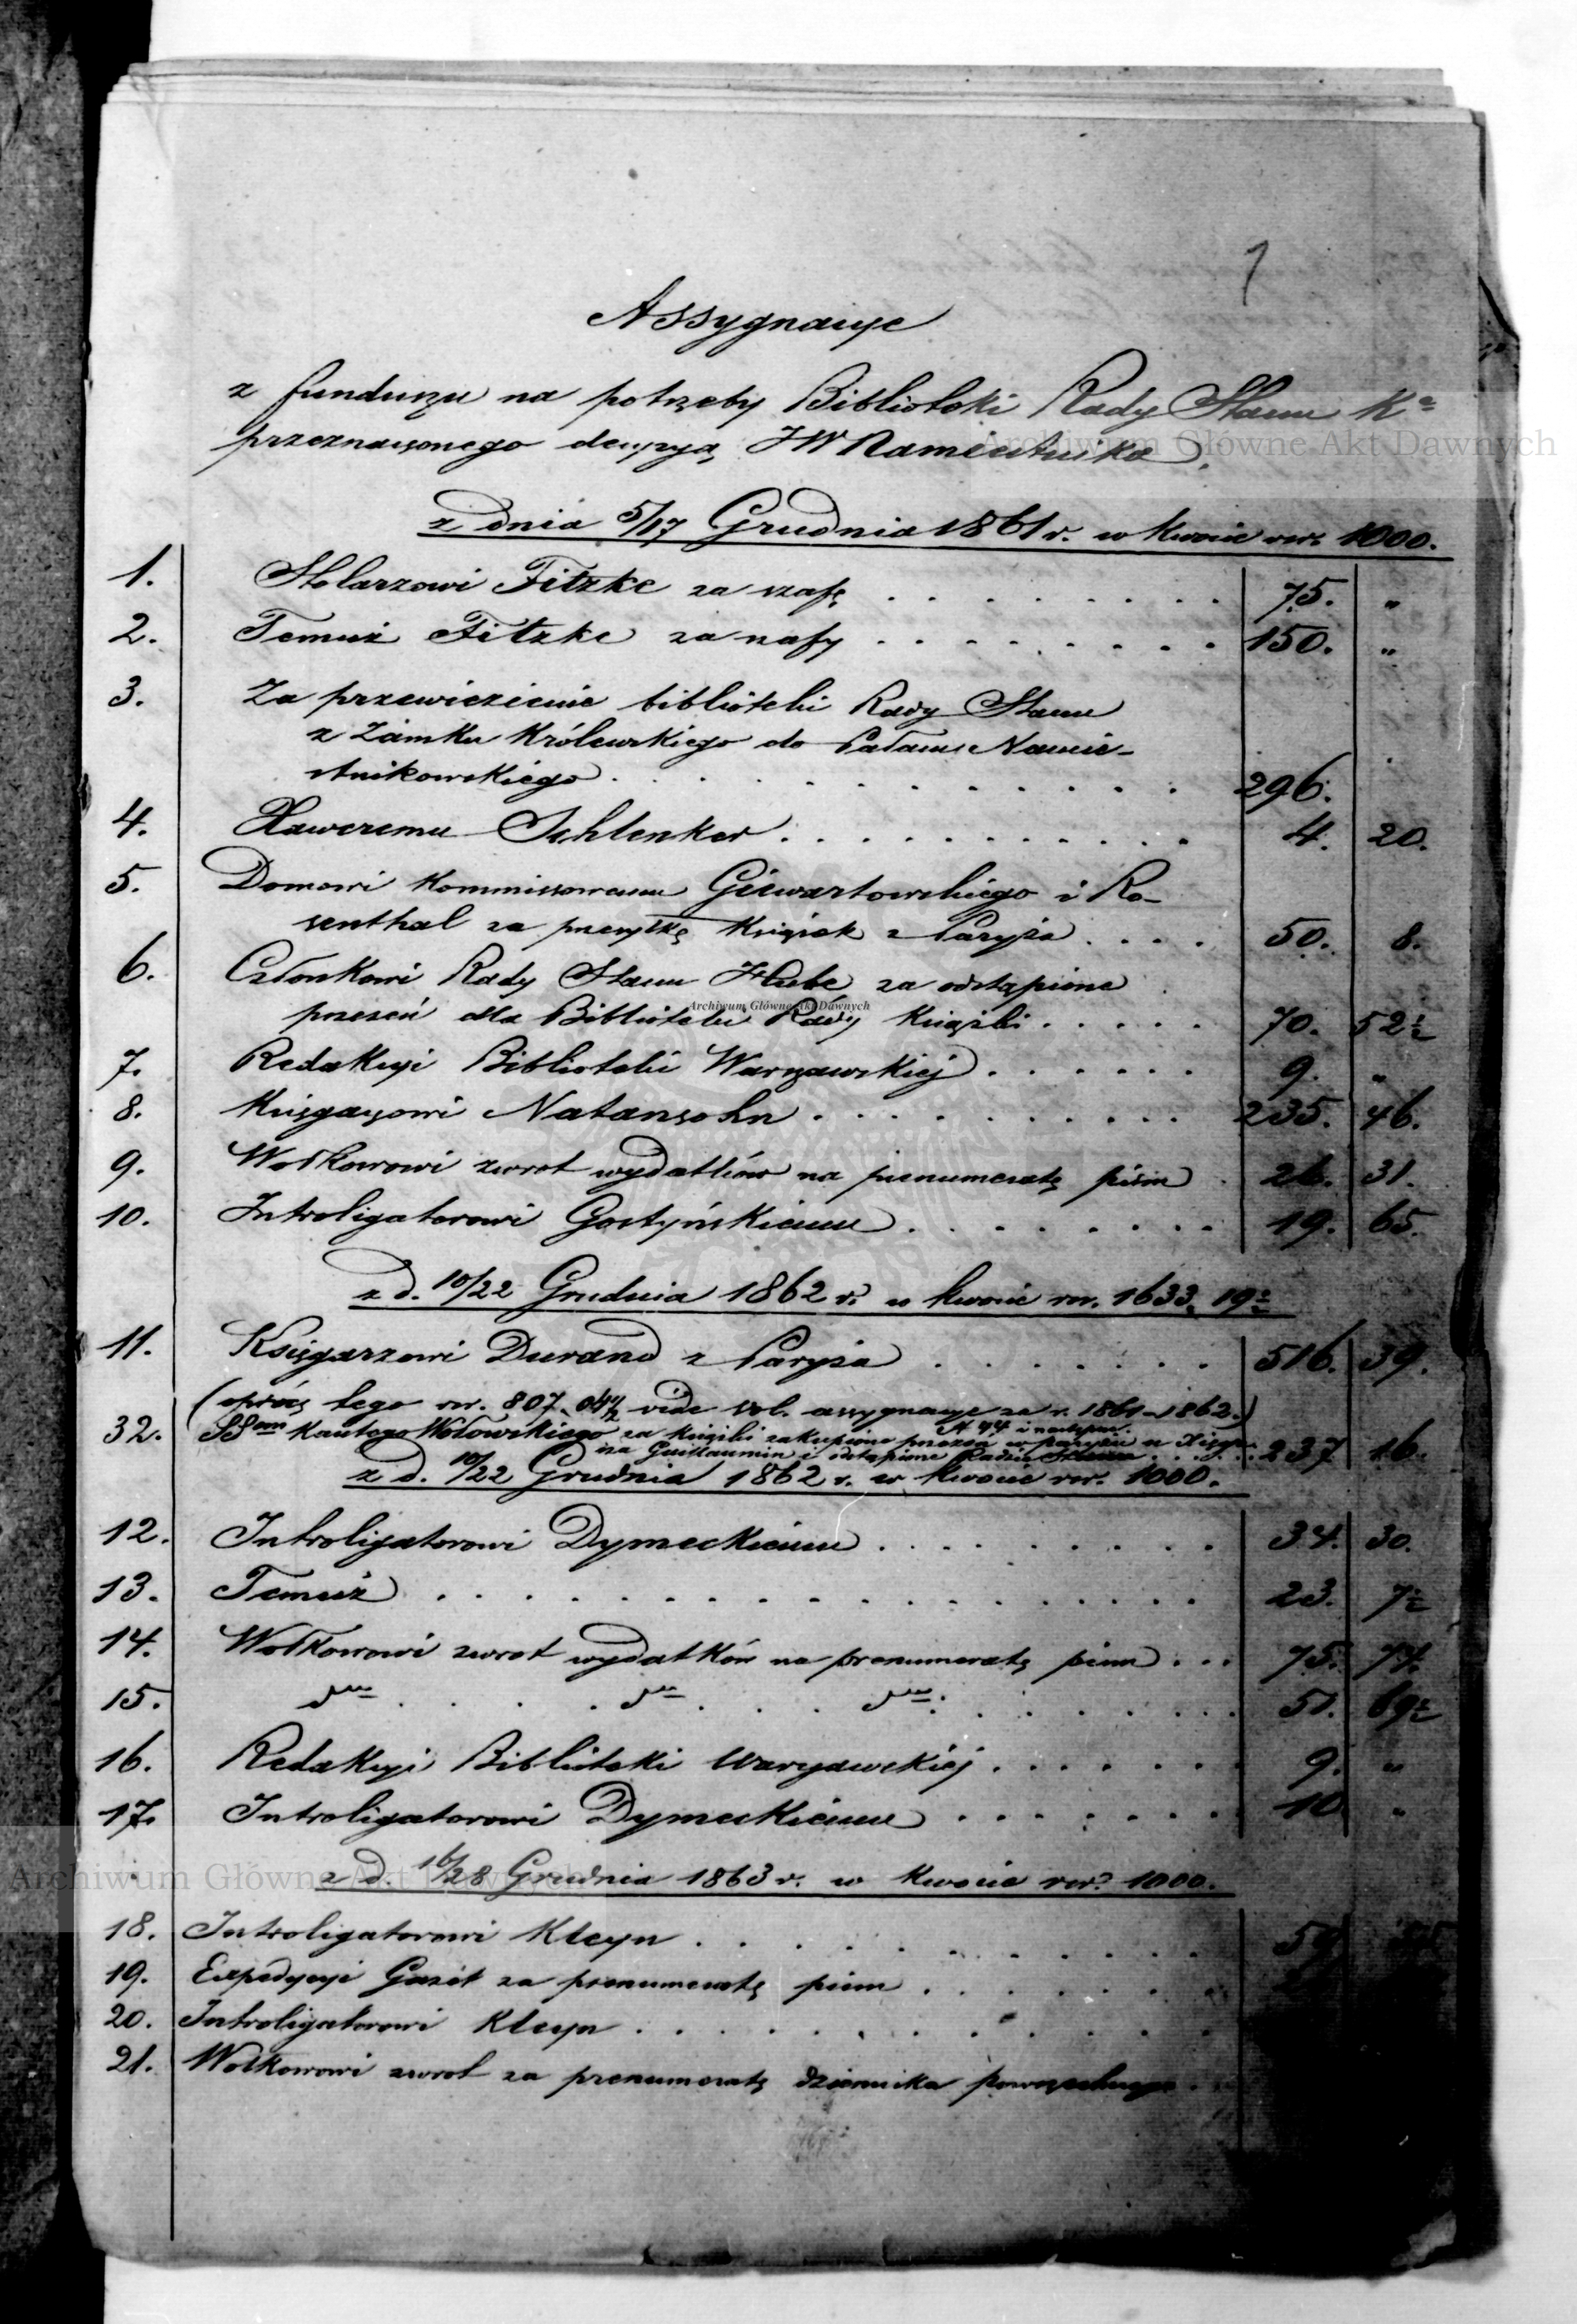 1
Assygnacye
z funduszu na potrzeby Biblioteki Rady Stanu K
przeznaczonego decyzyą JW Namiestnika
z dnia 5/17 Grudnia 1861 r. w kwocie rsr. 1000.
1. Stolarzowi Fitzke za szafę 75. "
2. Temuż Fitzke za szafy 150. "
3. Za przewiezienie biblioteki Rady Stanu
z Zamku Królewskiego do Pałacu Namie-
stnikowskiego 296.
4. Xaweremu Schlenker 4. 20.
5. Domowi Kommissowemu Giewartowskiego i Ro-
senthal za przesyłkę Książek z Paryża 50. 8.
6. Członkowi Rady Stanu Hube za odstąpione
przezeń dla Biblioteki Rady Książki 70. 52 1/2
7. Redakcyi Biblioteki Warszawskiej 9. "
8. Księgarzowi Natansohn 235. 46.
9. Wołkowowi zwrot wydatków na prenumeratę pism 26. 31.
10. Introligatorowi Gostyńskiemu 19. 65.
z d. 10/22 Grudnia 1862 r. w kwocie rsr. 1633. 19 1/2
11. Księgarzowi Durand z Paryża 516. 39.
(oprócz tego rsr. 807. 04 1/2 vide vol. assygnacye za r. 1861-1862.)
N 44 i następn.
32. Kantego Wołowskiego za książki zakupione przezeń w Paryżu u Xięga-
rza Guillaumin i odstąpione Radzie Stanu 237 16.
z d. 10/22 Grudnia 1862 r. w kwocie rsr. 1000.
12. Introligatorowi Dymeckiemu 34. 30.
13. Temuż 23. 7 1/2
14. Wołkowowi zwrot wydatków na prenumeratę pism 75. 74.
15. 51. 69 1/2
16. Redakcyi Biblioteki Warszawskiej 9. "
17. Introligatorowi Dymeckiemu 10 "
z d. 16/28 Grudnia 1863 r. w kwocie rsr. 1000.
18. Introligatorowi Kleyn
19. Expedycyi Gazet za prenumeratę pism
20. Introligatorowi Kleyn
21. Wołkowowi zwrot za prenumeratę dziennika powszechnego
Archiwum Główne Akt Dawnych
Archiwum Główne Akt Dawnych
Archiwum Główne Akt Dawnych